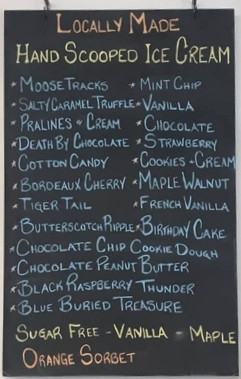 Locally Made
Hand Scooped Ice Cream
* Moose Tracks * Mint Chip
* Salty Caramel Truffle * Vanilla
* Pralines & Cream * Chocolate
* Death By Chocolate * Strawberry
* Cotton Candy * Cookies + Cream
* Bordeaux Cherry * Maple Walnut
* Tiger Tail * French Vanilla
* Butterscotch Ripple * Birthday Cake
* Chocolate Chip Cookie Dough
* Chocolate Peanut Butter
* Black Raspberry Thunder
* Blue Buried Treasure
Sugar Free - Vanilla - Maple
Orange Sorbet